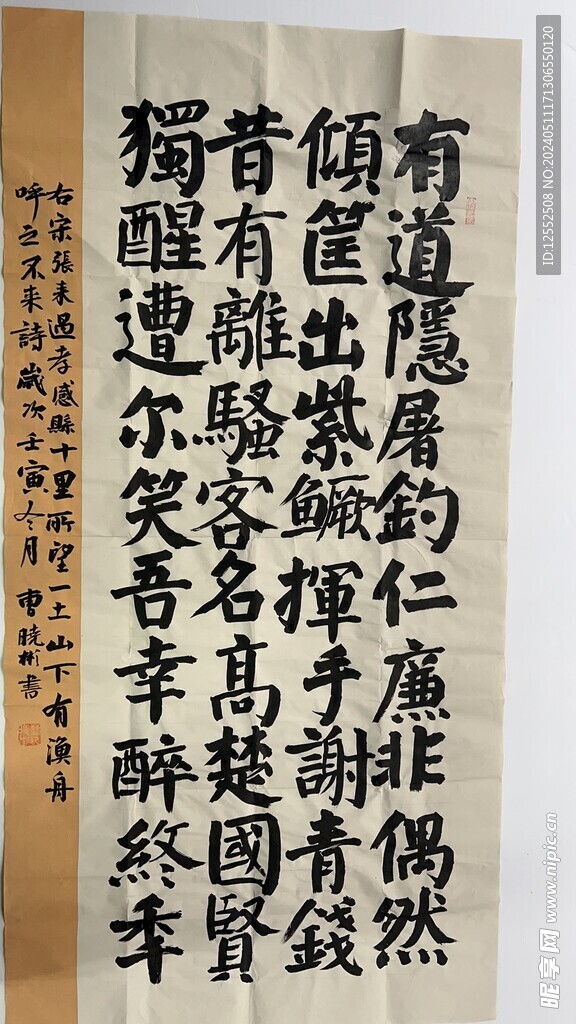 有道隱屠釣仁廉非偶然
傾筐出紫鱖揮手謝青錢
昔有離騷客名高楚國賢
獨醒遭尔笑吾幸醉終年
右宋張耒過孝感縣十里所望一土山下有漁舟
呼之不来詩歲次壬寅冬月曹曉彬書
ID:12552508 NO:20240511171306550120
昵享网 www.nipic.cn